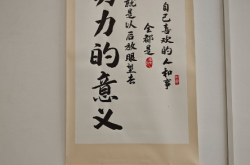 努力的意义
就是以后放眼望去
全都是
自己喜欢的人和事